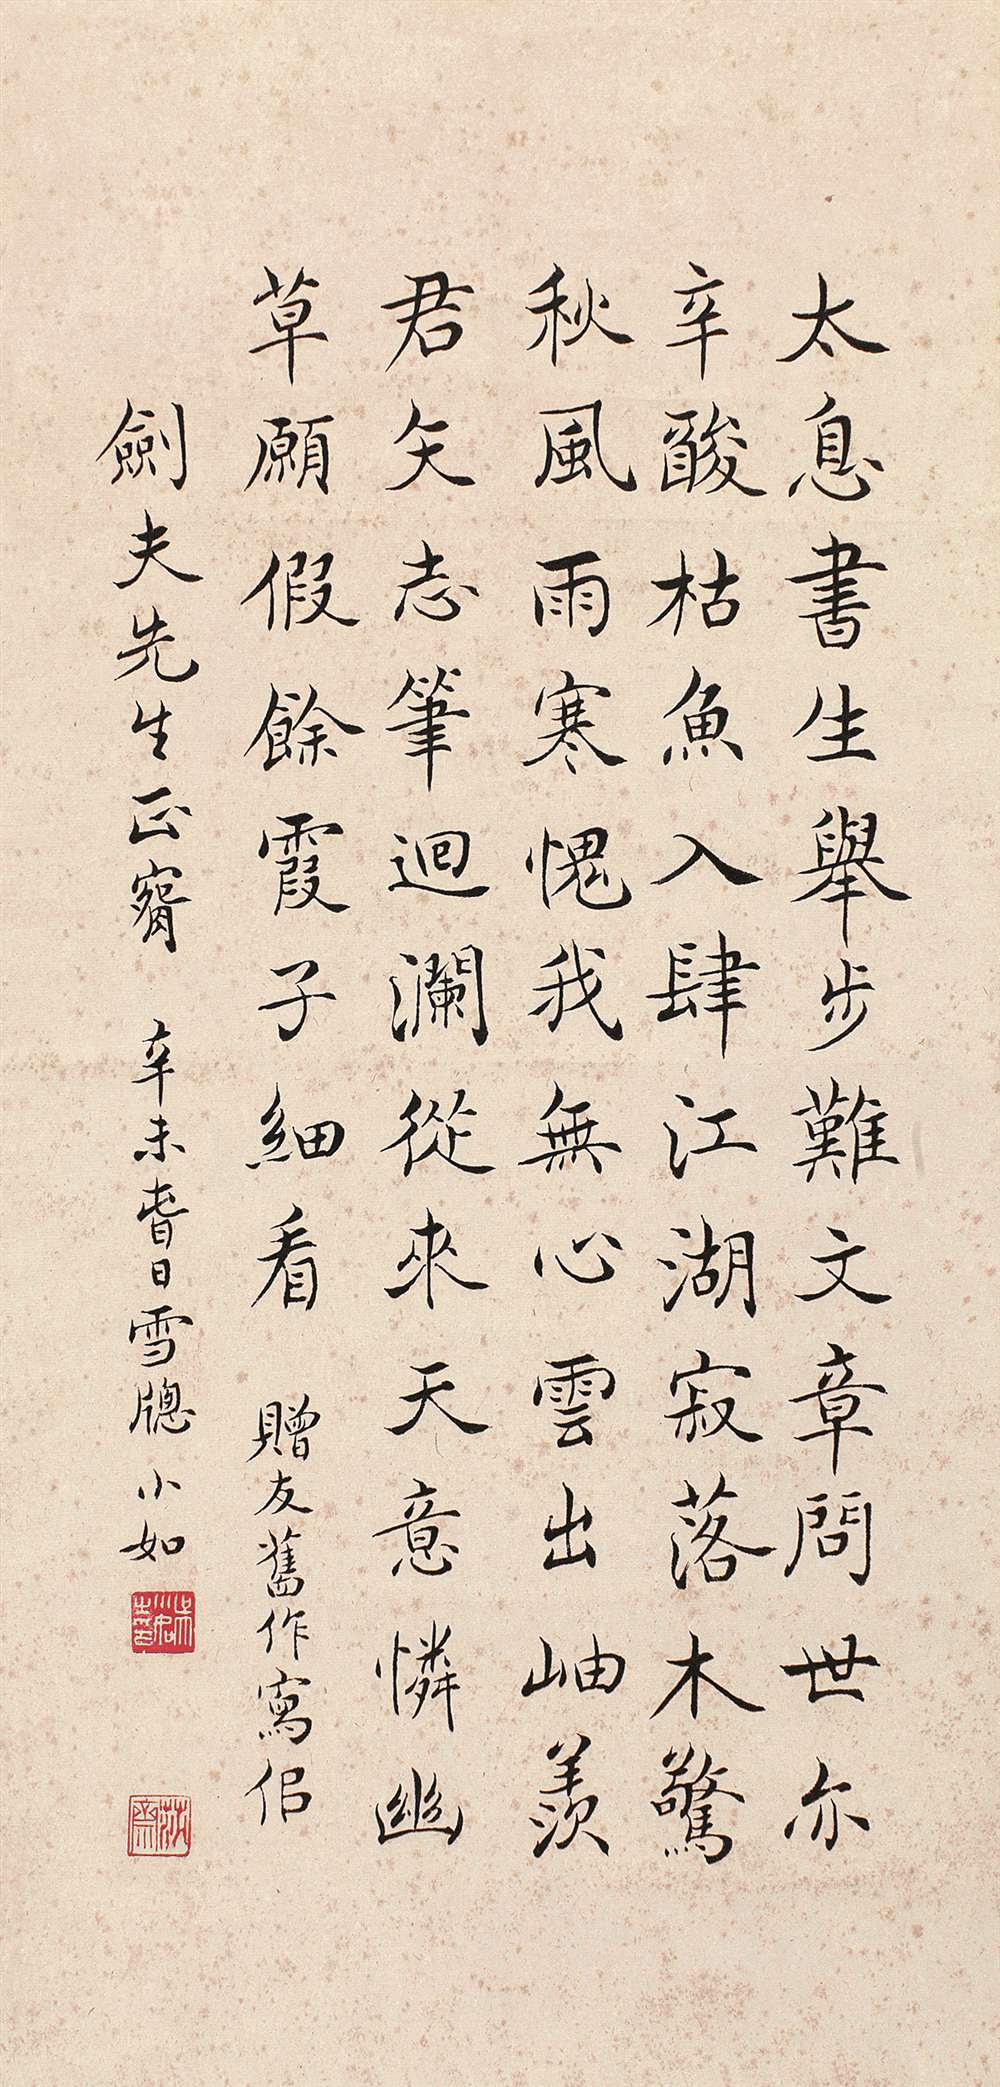 太息書生舉步難文章問世亦
辛酸枯魚入肆江湖寂落木驚
秋風雨寒愧我無心雲出岫羨
君矢志筆迴瀾從來天意憐幽
草願假餘霞子細看 贈友舊作寫佀
劍夫先生正 辛未春日雪牕 小如
吳小如
莎齋